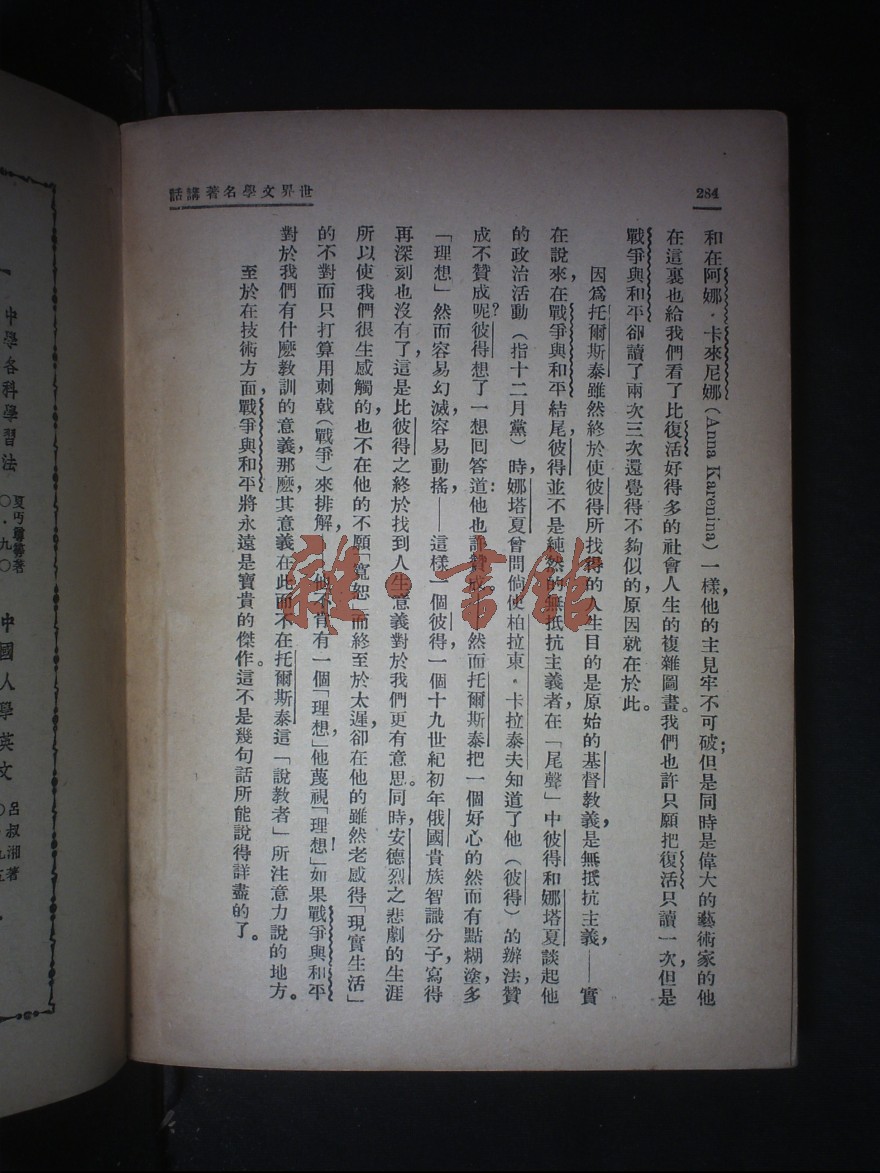 284
世界文學名著講話
和在阿娜·卡來尼娜(Anna Karenina)一樣，他的主見牢不可破；但是同時是偉大的藝術家的他
在這裏也給我們看了比復活好得多的社會人生的複雜圖畫。我們也許只願把復活只讀一次，但是
戰爭與和平卻讀了兩次三次還覺得不夠似的，原因就在於此。
因爲托爾斯泰雖然終於使彼得所找得的人生目的是原始的基督教義，是無抵抗主義，——實
在說來，在戰爭與和平結尾，彼得並不是純然的無抵抗主義者，在「尾聲」中彼得和娜塔夏談起他
的政治活動(指十二月黨)時，娜塔夏曾問倘使柏拉東·卡拉泰夫知道了他(彼得)的辦法，贊
成不贊成呢？彼得想了一想回答道：他也許贊成，——然而托爾斯泰把一個好心的然而有點糊塗，多
「理想」然而容易幻滅，容易動搖，——這樣一個彼得，一個十九世紀初年俄國貴族智識分子，寫得
再深刻也沒有了，這是比彼得之終於找到人生意義對於我們更有意思。同時，安德烈之悲劇的生涯
所以使我們很生感觸的，也不在他的不願「寬恕」而終至於太遲，卻在他的雖然老感得「現實生活」
的不對而只打算用刺戟(戰爭)來排解，——他不肯有一個「理想」，他蔑視「理想」！如果戰爭與和平
對於我們有什麽教訓的意義，那麽，其意義在此而不在托爾斯泰這「說教者」所注意力說的地方。
至於在技術方面，戰爭與和平將永遠是寶貴的傑作。這不是幾句話所能說得詳盡的了。
雜·書館
中國人學英文
呂叔湘著
中學各科學習法
夏丏尊等著
〇·九〇